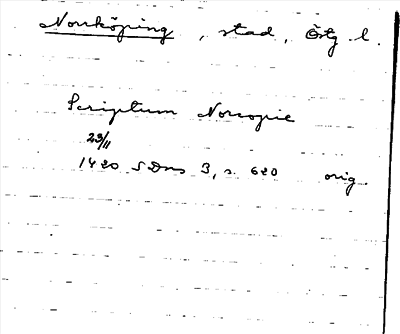 Norrköping, stad, Östg l.
Scriptum Norcopie
23/11
1420 SDns 3, s. 620 orig.